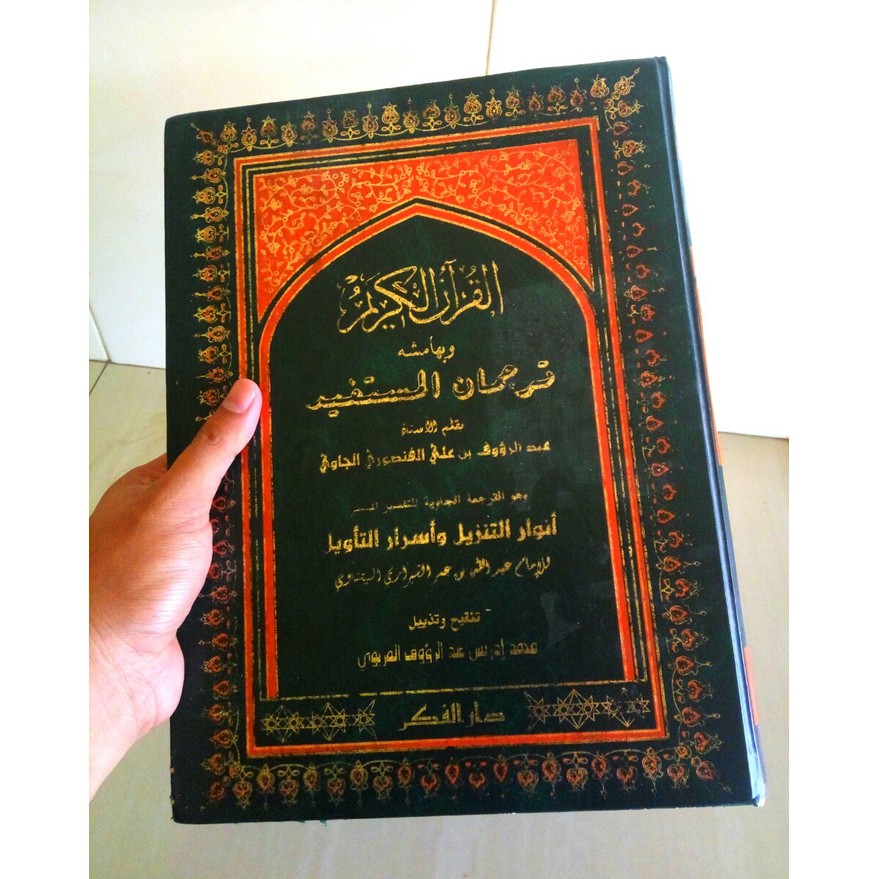 القرآن الكريم
وبهامشه
ترجمان المستفيد
بقلم الأستاذ
عبد الرؤوف بن علي الفنصوري الجاوي
وهو الترجمة الجاوية للتفسير
أنوار التنزيل وأسرار التأويل
للإمام عبد الله بن عمر الشيرازي البيضاوي
تنقيح وتذييل
محمد إدريس عبد الرؤوف المربوي
دار الفكر